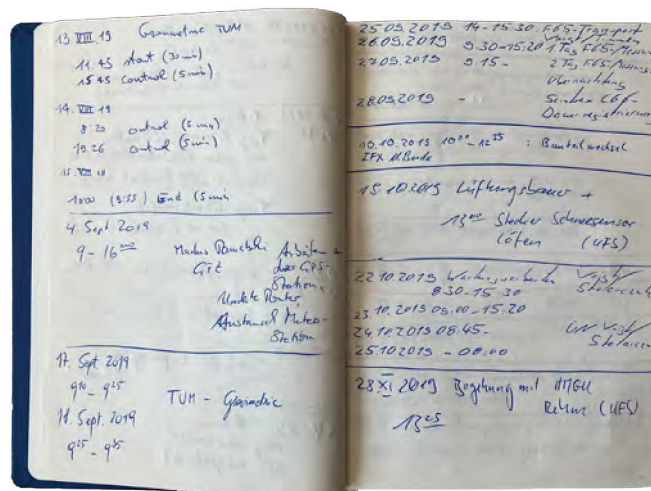 13. VIII. 19 Gravimetrie TUM
11.45 start (30 min)
15.45 control (5 min)
14. VIII 19
8:20 control (5 min)
19.26 control (5 min)
15. VIII 19
1000 (9:55) End (5 min
4. Sept 2019
9 - 16 Markus Arbeiten
GFZ der GPS-
Station,
Update Router,
Austausch Meteo-
Station
17. Sept. 2019
9 10 - 9 25
TUM - Gravimetrie
18. Sept. 2019
9 25 - 9 35
25.09.2019 14-15:30 FGS-Transport
26.09.2019 9.30-15:20 1 Tag FGS/Messung
27.09.2019 9.15- 2 Tag FGS/Messung
Übernachtung
28.09.2019 -
Dauerregistrierung
10.10.2019 10 00 - 12 : Bauteilwechsel
IFX
15.10.2019 Lüftungsbauer +
13 00 Stecker Schneesensor
Löten (UFS)
22.10.2019 Wartungsarbeiten Voigt/
8.30-15.30
23.10.2019 09:00-15:20
24.10.2019 08:45- Voigt/
25.10.2019 - 08:00
28 XI 2019 Begehung mit
(UFS)
13 25